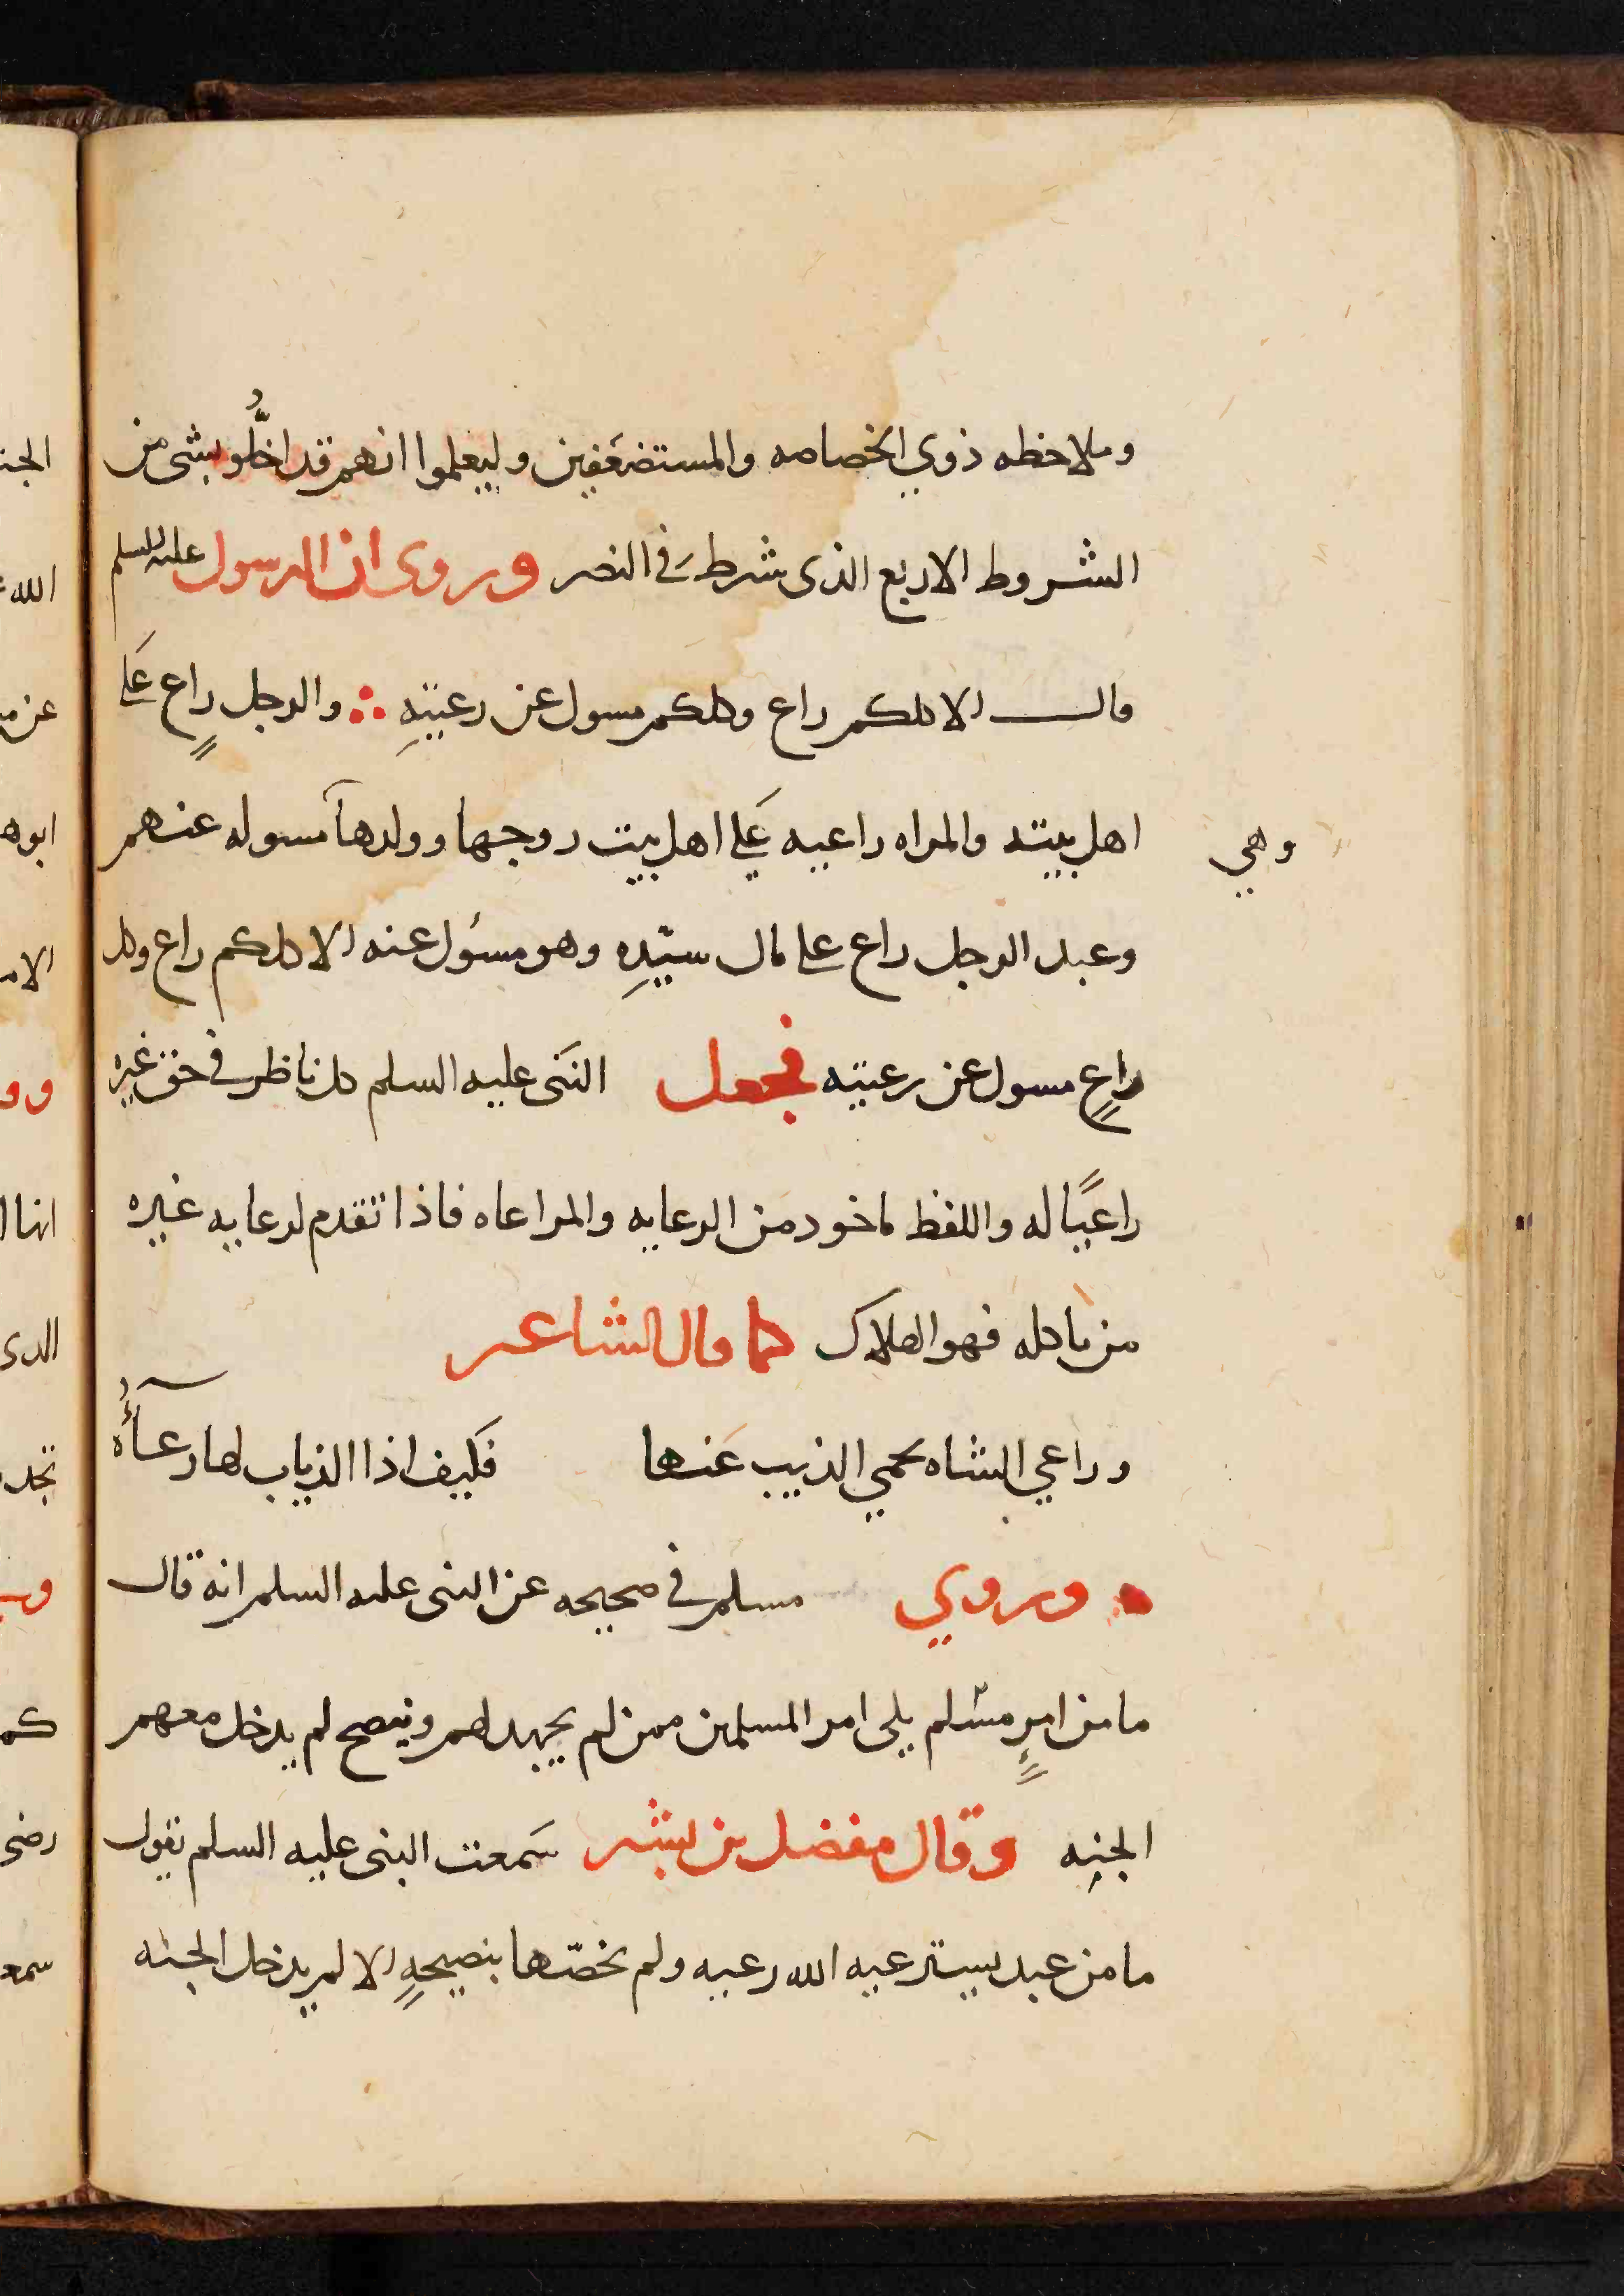 وملاحظه ذوي الخصاصه والمستضعَفين وليعلموا انهم قد اخلُّو بشى من
الشروط الاربع الذى شرطَ في النصر وروى ان الرسول عليه السلم
قال الا كلكم راع وكلكم مسول عن رعيتهِ ∴ والرجل راعٍ عَلى
اهل بيته والمراه راعيه عَلى اهل بيت زوجها وولدها مسوله عنهم
وهي
وعبد الرجل راع على مال سيّدِه وهو مسؤل عنه الا كلكم راع وكل
راعٍ مسول عن رعيته فجعل النَبى عليه السلم كل ناظر في حق غيره
راعيًا له واللفظ ماخود من الرعايه والمراعاه فاذا تقدم لرعايه غيره
من ياكله فهو الهلاك كما قال الشاعر
وراعي الشاه يحمي الذيب عَنها فكَيف اذا الذياب لها رعآءُ
وروي مسلم في صحيحه عن النبى عليه السلم انه قال
ما من امرٍ مسْلم يلى امر المسلمين ممن لم يجهد لهم وينصح لم يدخل معهم
الجنه وقال مفضل بن بشر سَمعت النبى عليه السلم يقول
ما من عبد يسترعيه الله رعيه ولم يخصّها بنصيحهٍ الا لم يدخل الجنه
الجنه
الله
عن
ابوه
الامـ
وو
انها ا
الدى
تجد
كم
رضى
سمع